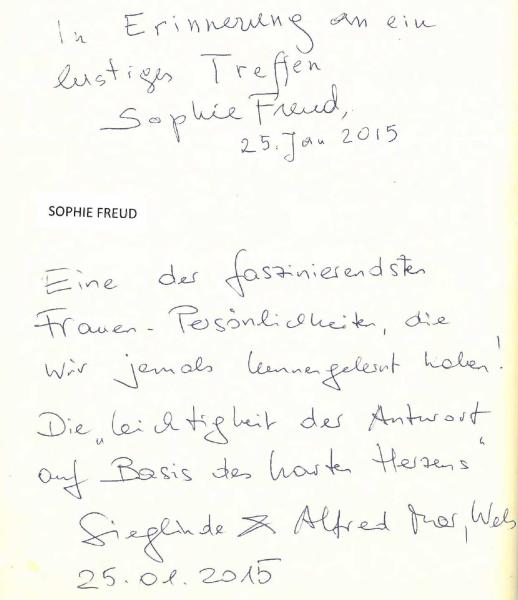 In Erinnerung an ein
lustiges Treffen
Sophie Freud,
25. Jan 2015
SOPHIE FREUD
Eine der faszinierendsten
Frauen-Persönlichkeiten, die
wir jemals kennengelernt haben!
Die „Leichtigkeit der Antwort
auf Basis des harten Herzens“
Sieglinde & Alfred Wels
25.01.2015